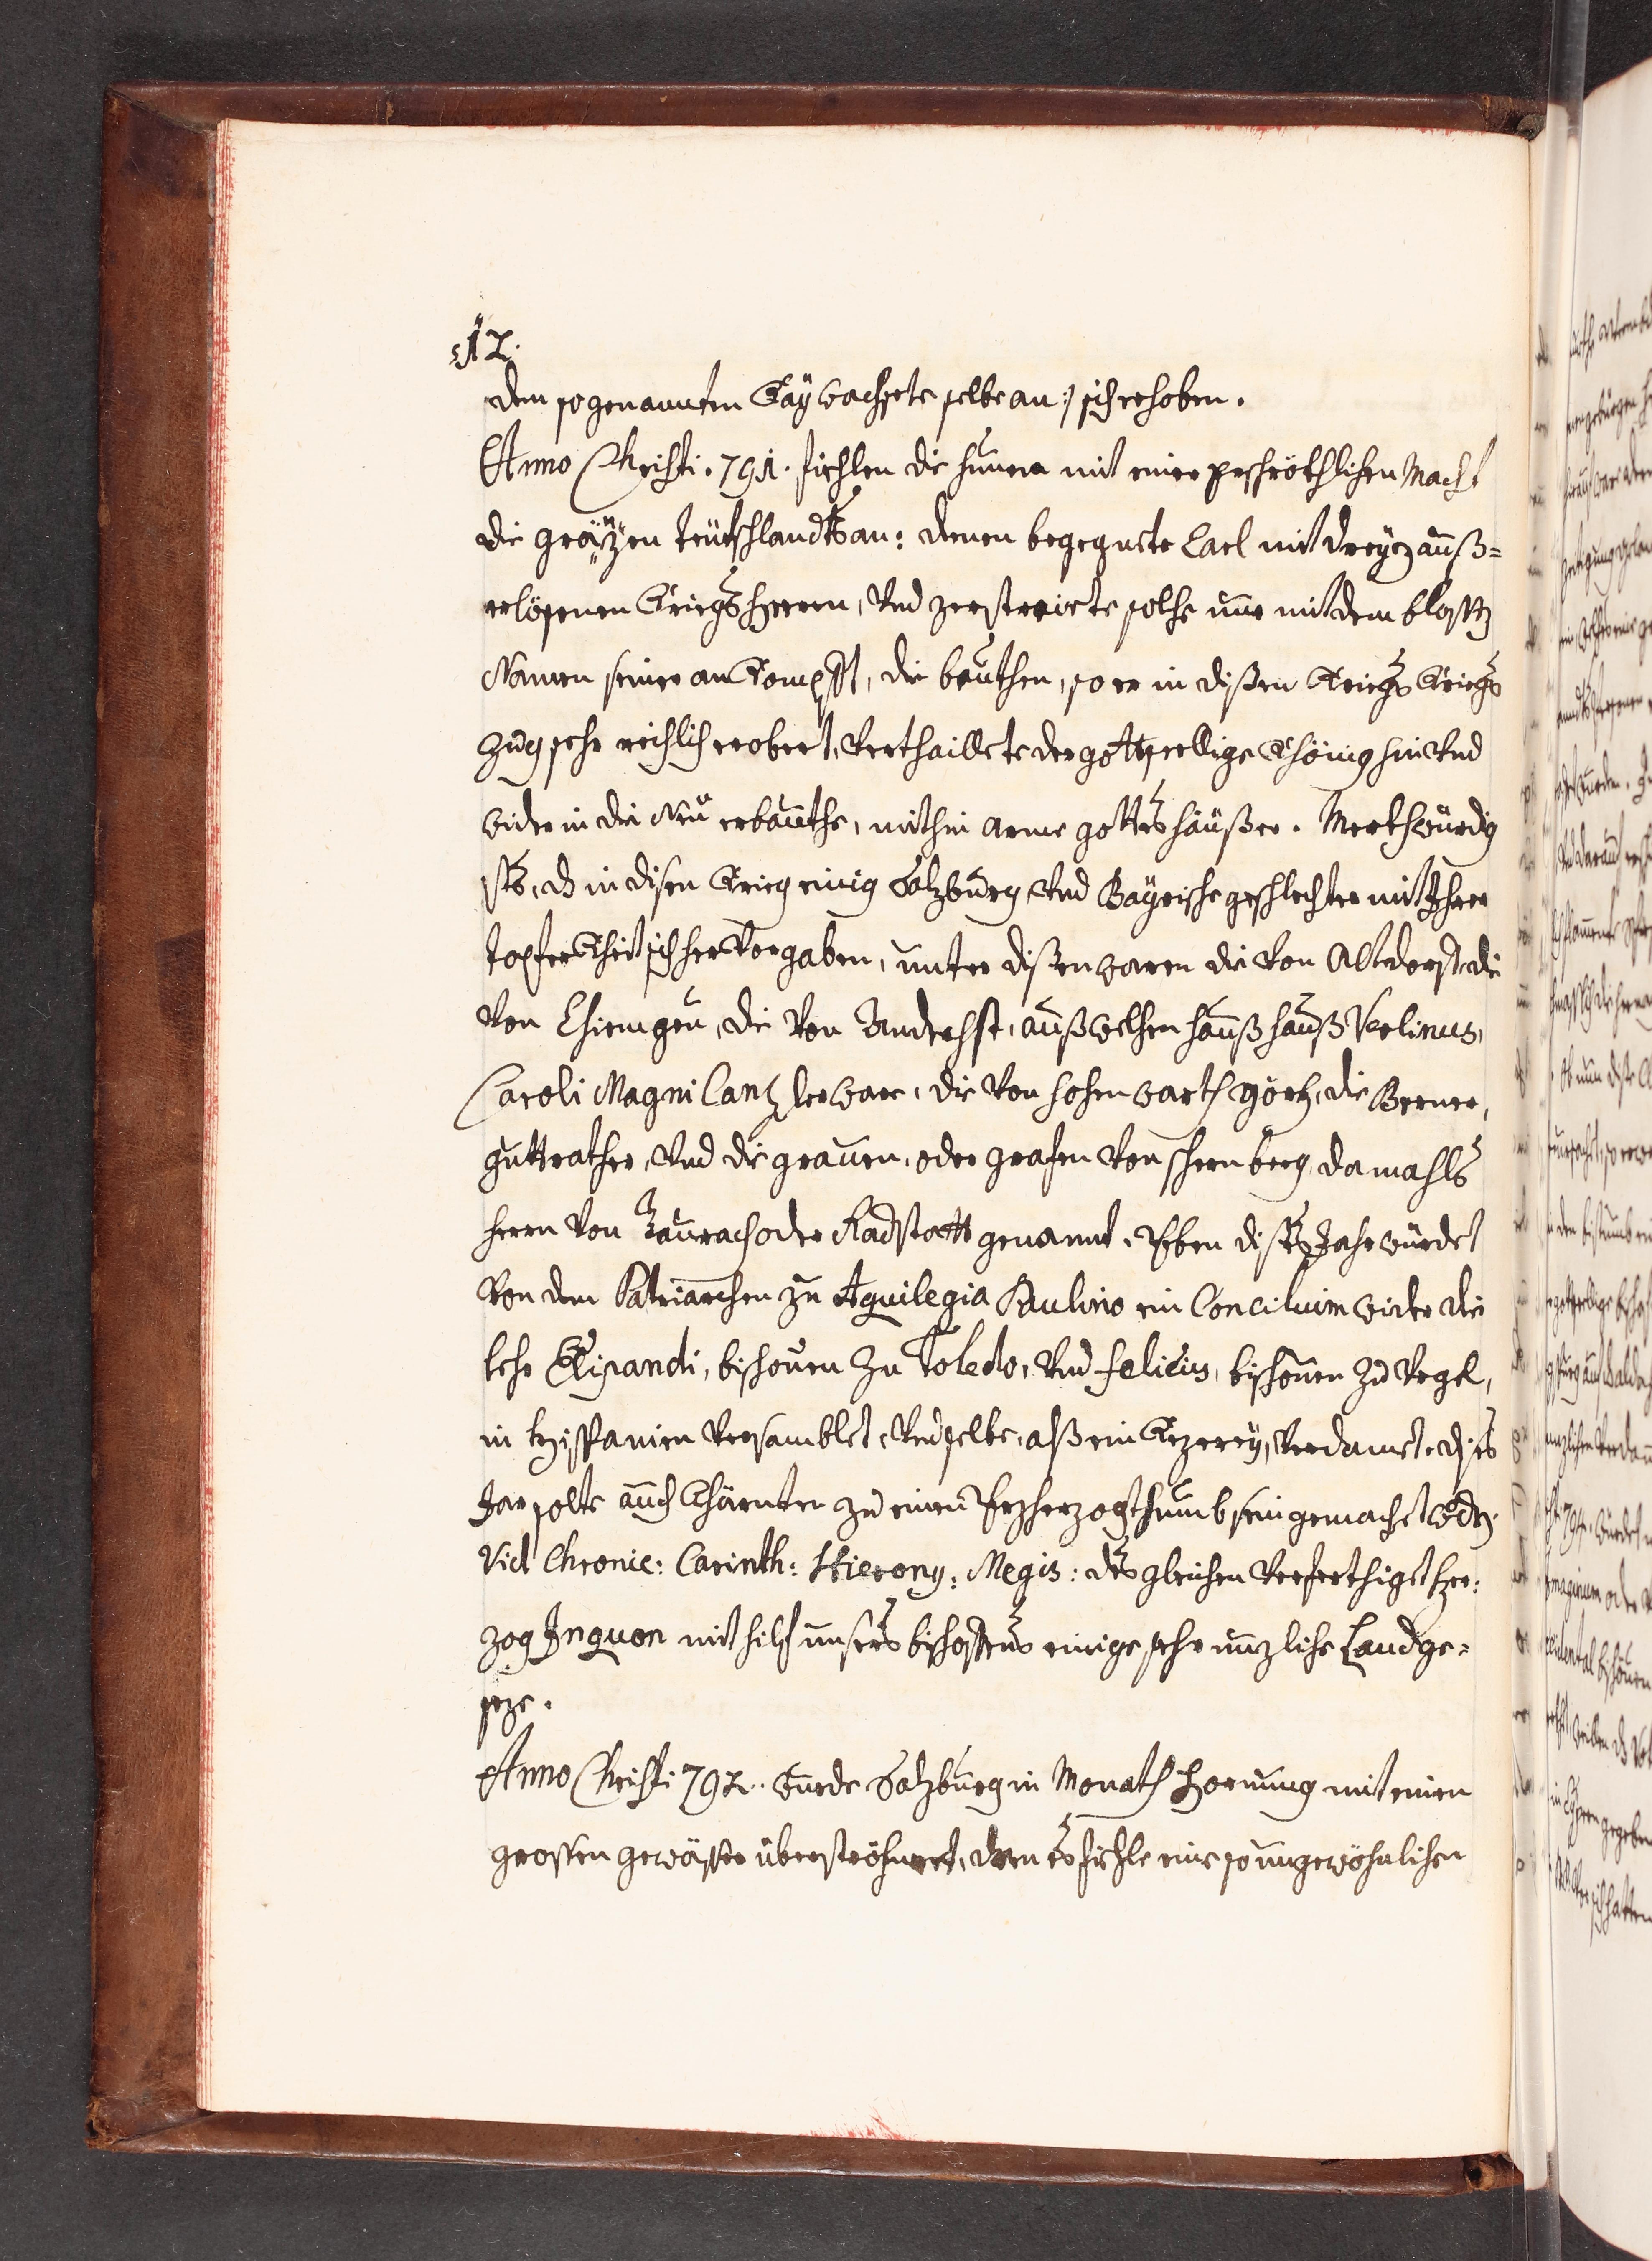 12.
dem so genannten Kay wachsete selbe an :/ sich erhoben.
Anno Christi. 791. fiehlen die hunen mit einer erschröckhlichen Macht
die gränzen teutschlandts an: denen begegnete Carl mit dreyen auß=
erlösenen Kriegsheeren, Vnd zerstreüete solche nur mit dem blossen
Namen seiner anKompfft, die beuthen, so er in dißen Kriegs Kriegs
zug sehr reichlich erobert, Verthaillete der gottseellige Khönig hin Vnd
wider in die Neu erbauthe, mithin arme gottes häußer. Merkhwürdig
ists, das in disen Krieg einig Salzburg Vnd Bayrische geschlechter mit Ihrer
topferKheit sich herVor gaben, unter dißen waren die Von Altdorf, die
Von Chiemgeu, die Von Andechst, auß welchen hauß hauß Verlinus,
Caroli Magni Canzler ware, die Von hohenwarth görz, die Berner,
guttrather, Vnd die grauen, oder grafen Von schernberg, damahls
herrn Von Taurach oder Radstatt genannt. Eben dises Jahr wurdet
Von dem Patriarchen zu Aquilegia Paulino ein Concilium wider die
lehr Elipandi, bischouen zu Toledo, Vnd felicius, bischouen zu Vrgel,
in hispanien Versamblet, Vnd selbe, alß ein Kezerey, Verdamet. dises
Jar solte auch Khärnten zu einem Erzherzogthumb sein gemachet worden.
Vid Chronic: Carinth: Hierony: Megis: des gleichen Verferthiget her=
zog Inguon mit hilf unsers bischoffens einige sehr nuzliche Landge=
seze.
Anno Christi 792. wurde Salzburg in Monath Hornung mit einen
grossen gewässer überströhmet, dann es fiehle eine so ungewöhnlichen